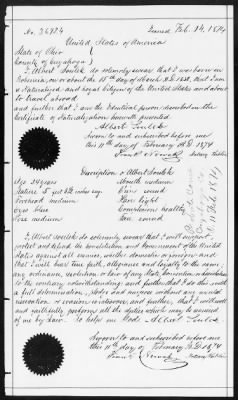 No. 36924 Issued Feb. 14, 1874
United States of America
State of Ohio
County of Cuyahoga
I Albert Soulek do solemnly swear that I was born in
Bohemia, on or about the 15th day of March A.D. 1838, that I am
a Naturalized and loyal Citizen of the United States and about
to travel abroad
and further that I am the Identical person described in the
Certificate of Naturalization herewith presented.
Albert Soulek
Sworn to and subscribed before me
this 11th day of February A.D. 1874
Frank Novak Notary Public
Description of Albert Soulek
Age 35 years Mouth medium
Stature 5 feet Chin round
Forehead medium Hair light
Eyes blue Complexion healthy
Nose medium Face round
I Albert Soulek do solemnly swear that I will support
protect and defend the Constitution and Government of the United
States against all enemies, whether domestic or foreign and
that I will bear true faith, allegiance and loyalty to the same,
any ordinance, resolution or law of any State, Convention or Legislature
to the contrary notwithstanding; and further that I do this with
a full determination, pledge and purpose without any mental
reservation or evasion whatsoever; and further, that I will well
and faithfully perform all the duties which may be required
of me by law. So help me God Albert Soulek
Sworn to and subscribed before me
this 11th day of February A.D. 1874
Frank Novak Notary Public